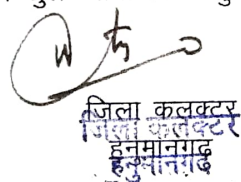 जिला कलक्टर
जिला कलेक्टर
हनुमानगढ़
हनुमानगढ़